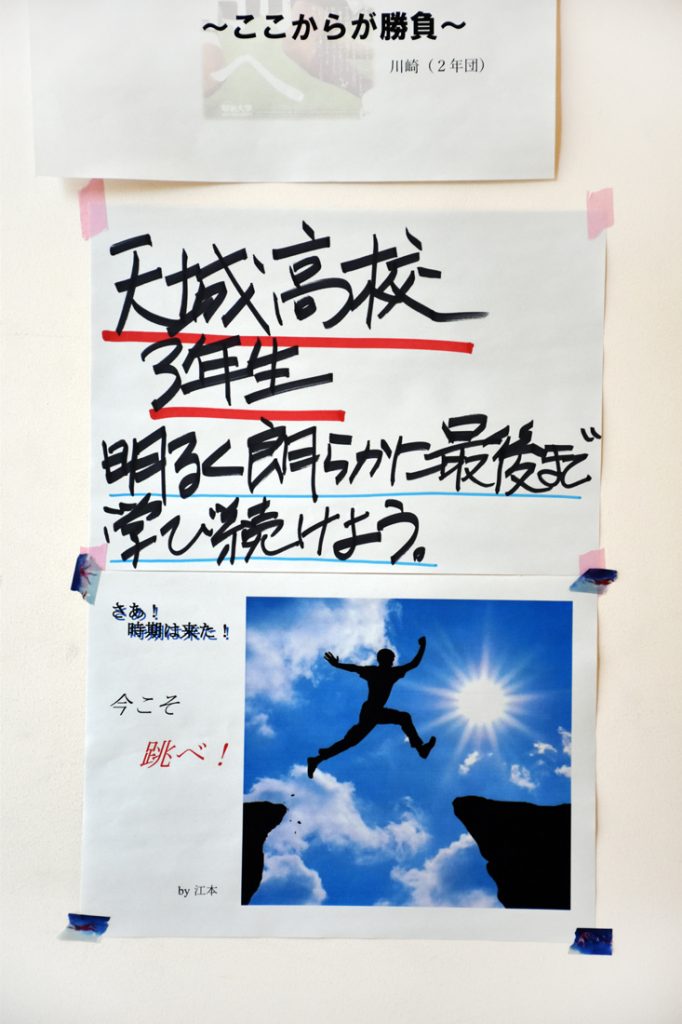 ～ここからが勝負～
川崎（２年団）
天城高校
3年生
明るく朗らかに最後まで
学び続けよう。
さあ！
時期は来た！
今こそ
跳べ！
by 江本